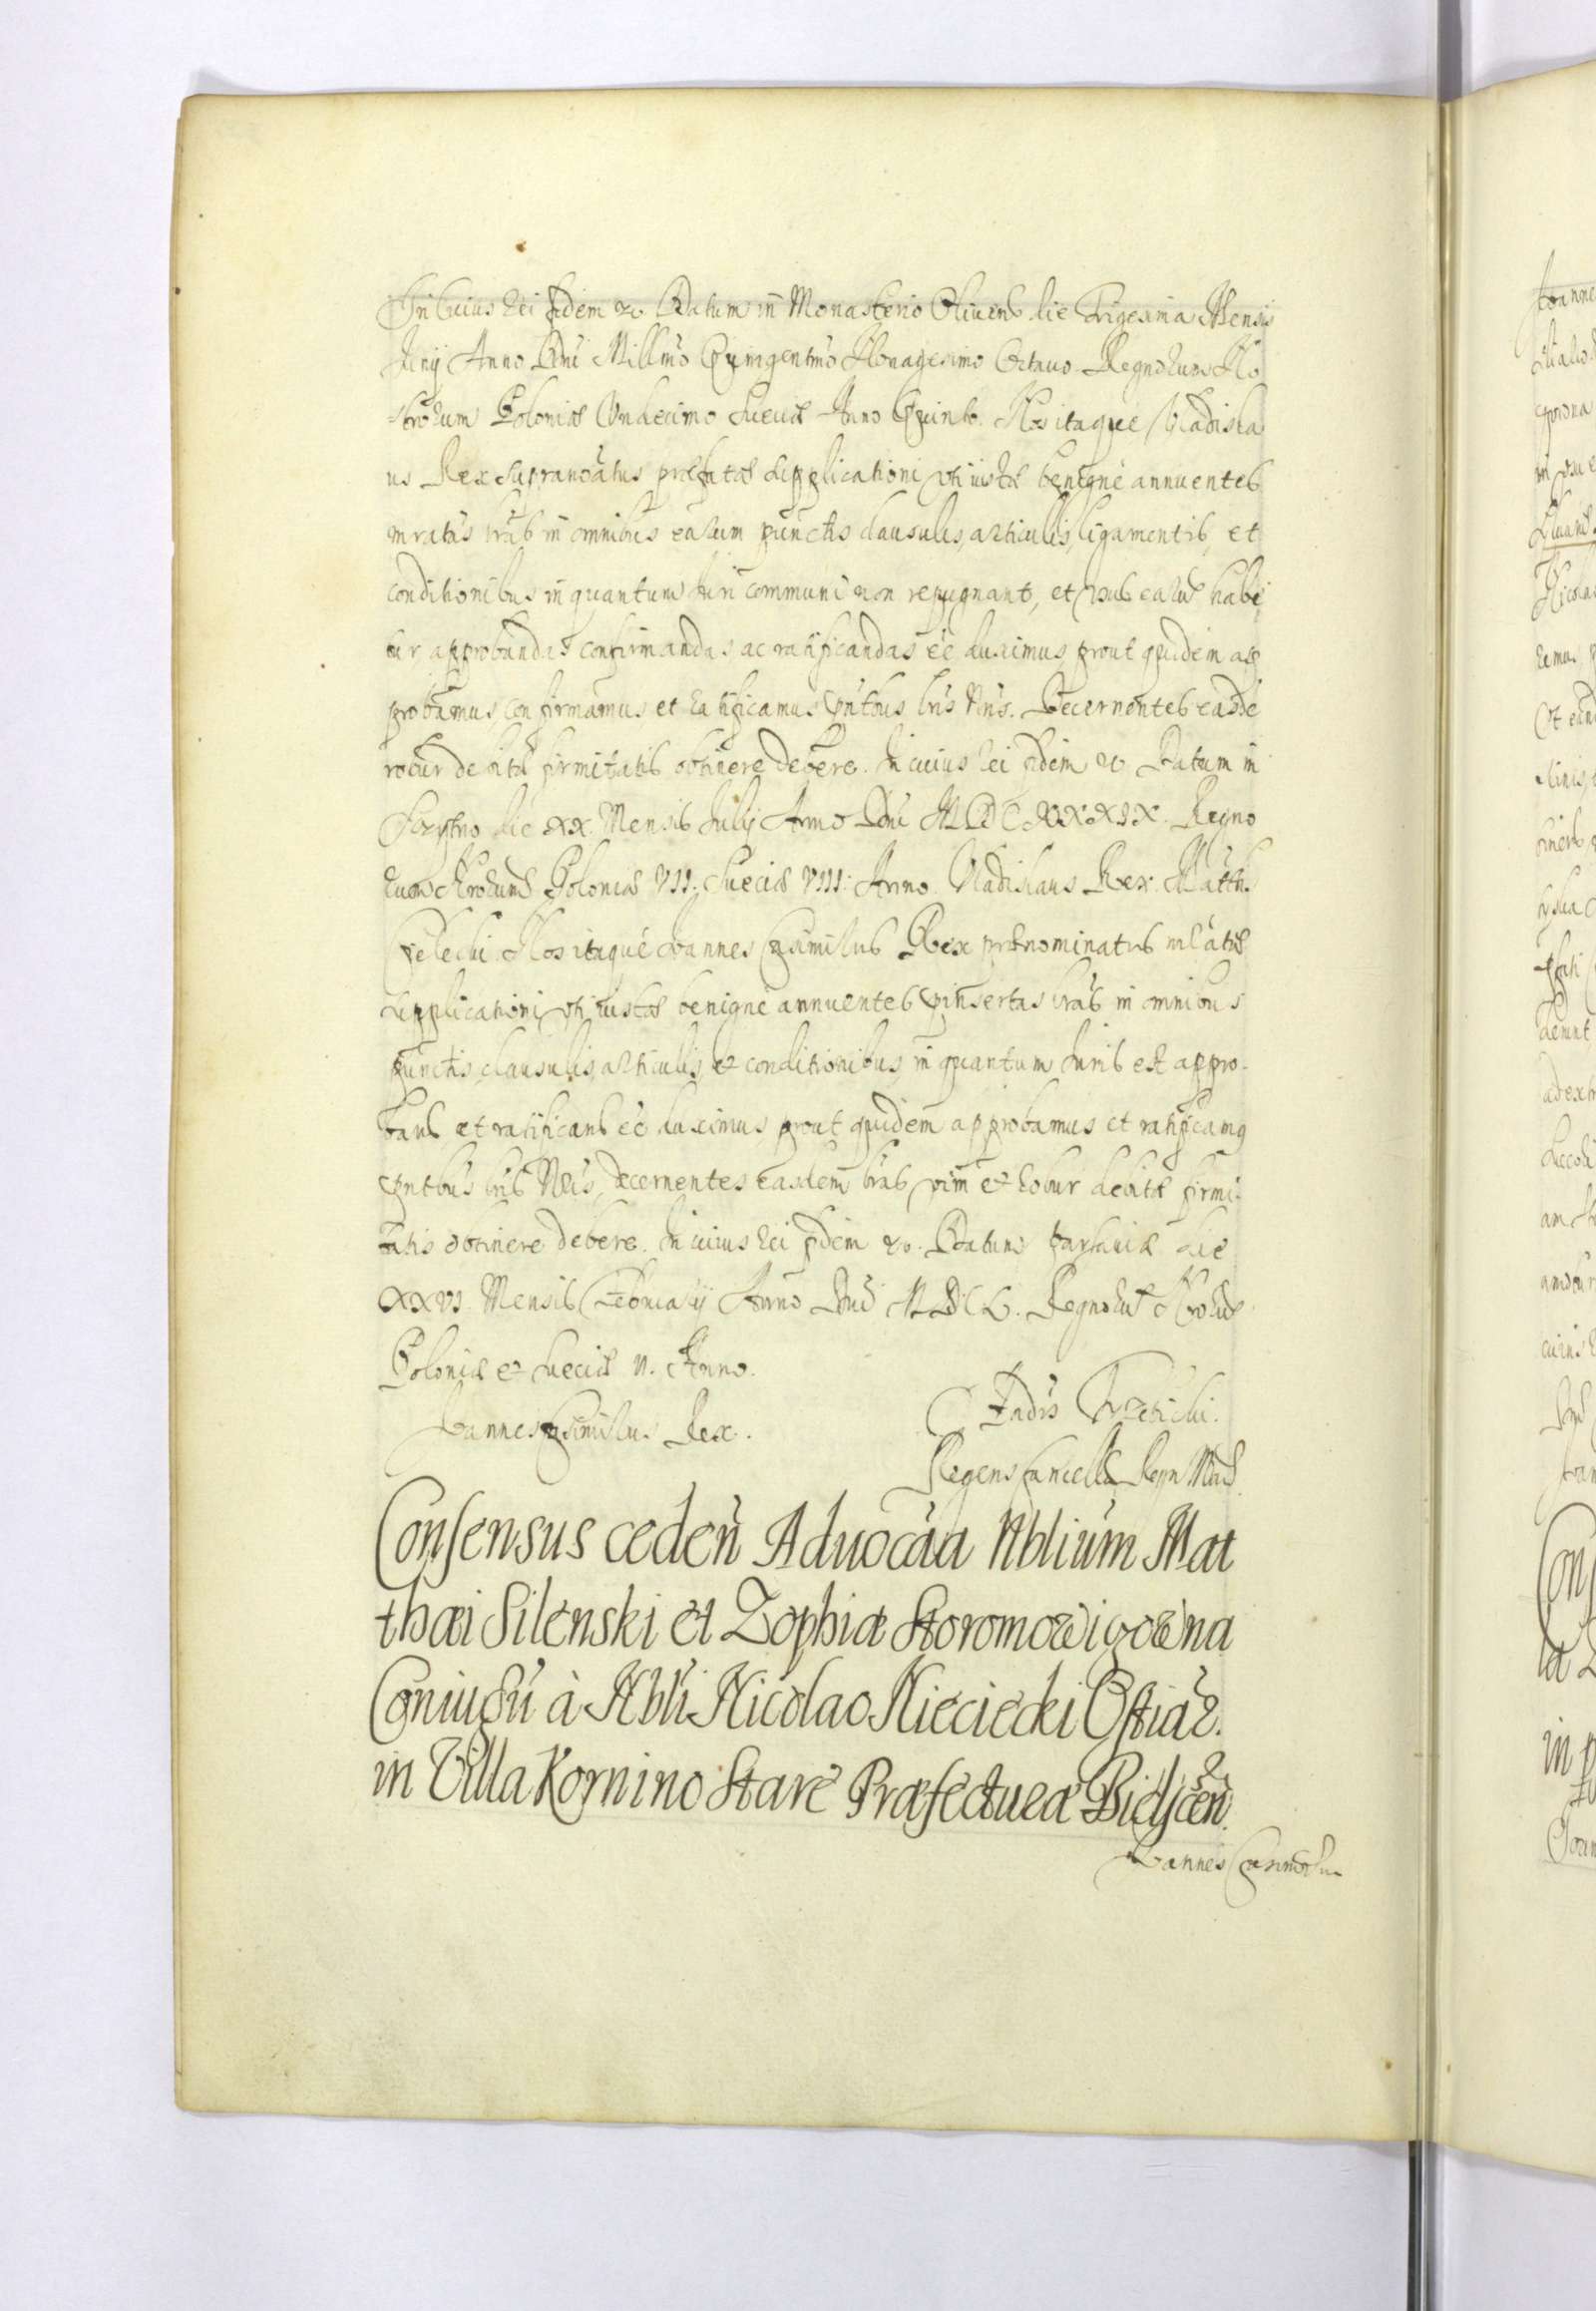 In Cuius rei fidem etc. Datum in Monasterio Oliuens die Trigesima Mensis
Junij Anno Dni Millmo Quingentmo Nonagesimo Octauo. Regnorum No
strorum Poloniæ Undecimo Sueciæ Anno Quinto. Nos itaque Vladisla
us Rex supranoatus præfatæ supplicationi uti iustæ benigne annuentes
inratas lras in omnibus earum punctis clausulis, articulis, ligamentis, et
conditionibus in quantum Juri communi non repugnant, et usus earum habe
tur approbandas confirmandas ac ratificandas ee duximus prout quidem ap
probamus confirmamus et ratificamus pntbus lris Nris. Decernentes easde
robur debitæ firmitatis obtinere debere. In cuius rei fidem etc Datum in
die XX. Mensis Julij Anno Dni MDCXXXIX. Regno
rum Nrorum Poloniæ VII. Sueciæ VIII. Anno. Vladislaus Rex. Matth.
Nos itaque Joannes Casimirus Rex prænominatus
supplicationi uti iustæ benigne annuentes pinsertas lras in omnibus
punctis, clausulis, articulis, et conditionibus, in quantum Juris est appro-
band et ratificand ee duximus, prout quidem approbamus et ratificamus
pntbus lris Nris, decernentes easdem lras vim et robur debitæ firmi-
tatis obtinere debere. In cuius rei fidem etc. Datum Varsauiæ die
XXVI. Mensis Februarij Anno Dni MDCL. Regnorum Nrorum
Poloniæ et Sueciæ II. Anno.
Joannes Casimirus Rex.
Trzebicki.
Regens Cancellæ Regn
Consensus ceden Aduocaa Nblium Mat
thæi Silenski et Zophiæ Storomowizowna
Coniugu à Nbli Nicolao Nieciecki Ostiar.
in Villa Kornino Stare Præfecturæ Bielscen.
Joannes Casimirus